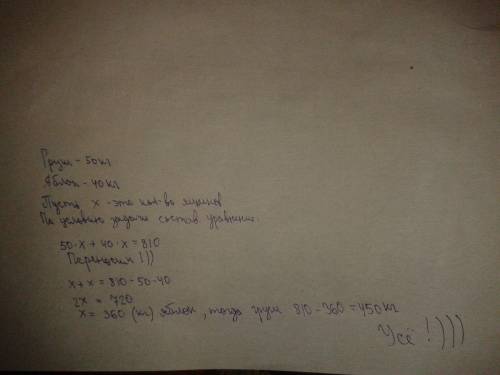 Груш - 50кг
Яблок - 40кг
Пусть x - это кол-во ящиков
По условию задачи состав. уравнение:
50·x + 40·x = 810
Переносим !))
x+x = 810-50-40
2x = 720
x = 360 (кг) яблок, тогда груш 810-360=450кг
Усё !)))